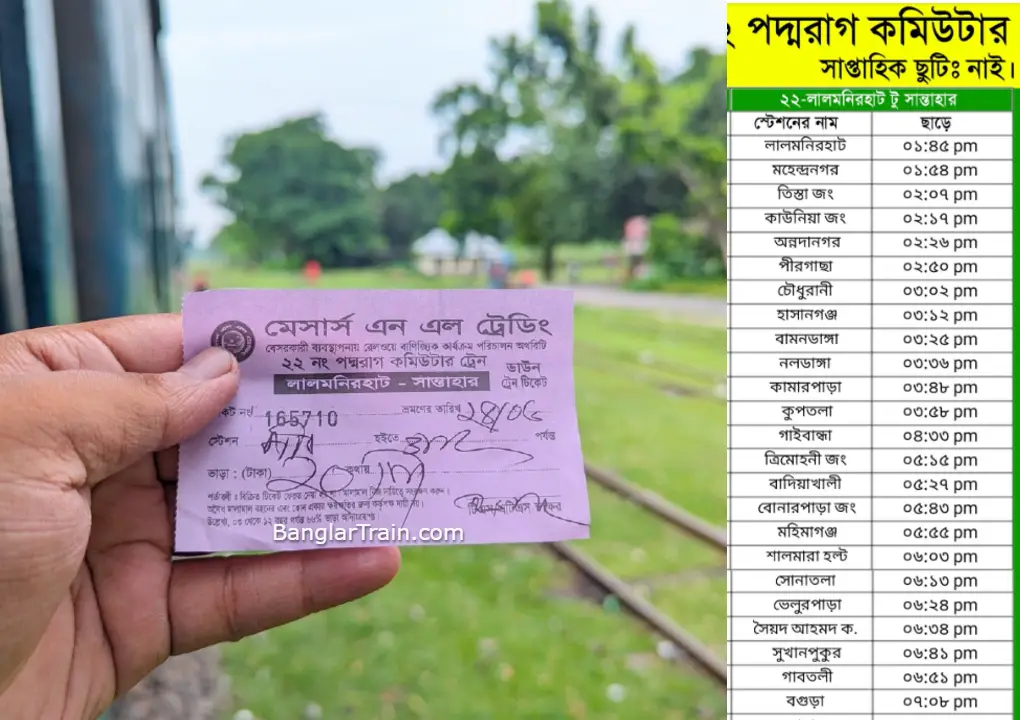 মেসার্স এন এল ট্রেডিং
বেসরকারী ব্যবস্থাপনায় রেলওয়ে বাণিজ্যিক কার্যক্রম পরিচালন অথরিটি
২২ নং পদ্মরাগ কমিউটার ট্রেন
ডাউন
লালমনিরহাট - সান্তাহার
ট্রেন টিকেট
নং 165710 ভ্রমণের তারিখ ২৪/০৬
স্টেশন হইতে পর্যন্ত
ভাড়া : (টাকা) ২০ কথায়
BanglarTrain.com
২ পদ্মরাগ কমিউটার
সাপ্তাহিক ছুটিঃ নাই।
২২-লালমনিরহাট টু সান্তাহার
স্টেশনের নাম ছাড়ে
লালমনিরহাট ০১:৪৫ pm
মহেন্দ্রনগর ০১:৫৪ pm
তিস্তা জং ০২:০৭ pm
কাউনিয়া জং ০২:১৭ pm
অন্নদানগর ০২:২৬ pm
পীরগাছা ০২:৫০ pm
চৌধুরানী ০৩:০২ pm
হাসানগঞ্জ ০৩:১২ pm
বামনডাঙ্গা ০৩:২৫ pm
নলডাঙ্গা ০৩:৩৬ pm
কামারপাড়া ০৩:৪৮ pm
কুপতলা ০৩:৫৮ pm
গাইবান্ধা ০৪:৩৩ pm
ত্রিমোহনী জং ০৫:১৫ pm
বাদিয়াখালী ০৫:২৭ pm
বোনারপাড়া জং ০৫:৪৩ pm
মহিমাগঞ্জ ০৫:৫৫ pm
শালমারা হল্ট ০৬:০৩ pm
সোনাতলা ০৬:১৩ pm
ভেলুরপাড়া ০৬:২৪ pm
সৈয়দ আহমদ ক. ০৬:৩৪ pm
সুখানপুকুর ০৬:৪১ pm
গাবতলী ০৬:৫১ pm
বগুড়া ০৭:০৮ pm